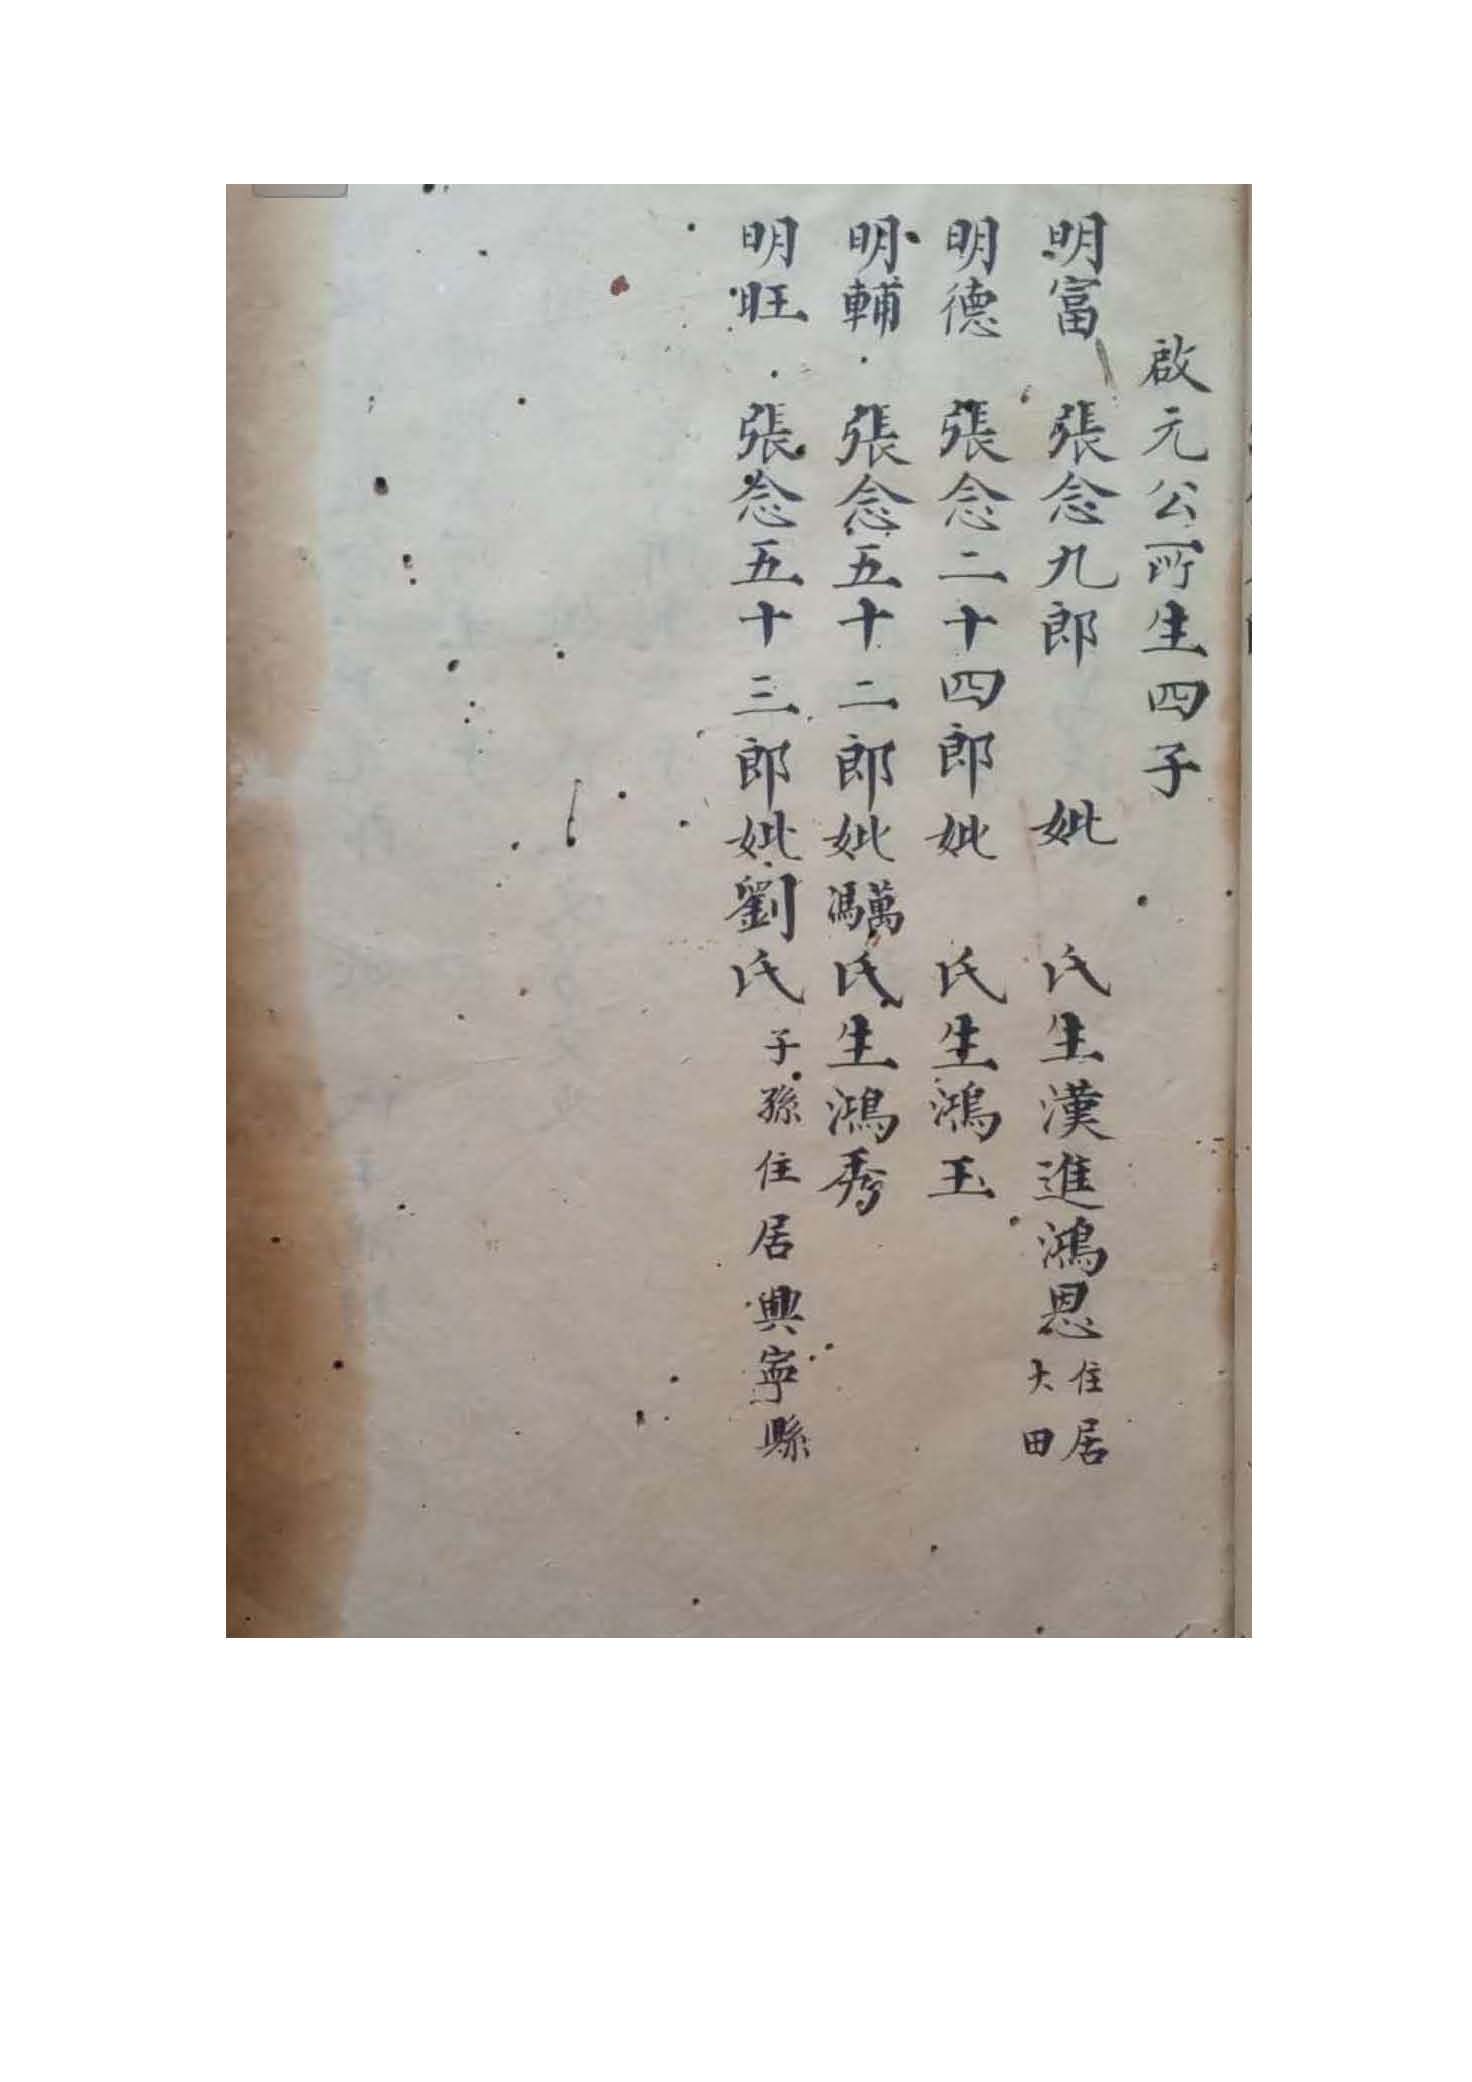 啟元公所生四子
明富 張念九郎 妣 氏生漢進鴻恩 住居大田
明德 張念二十四郎妣 氏生鴻玉
明輔 張念五十二郎妣萬馮氏生鴻秀
明旺 張念五十三郎妣劉氏 子孫住居興寧縣